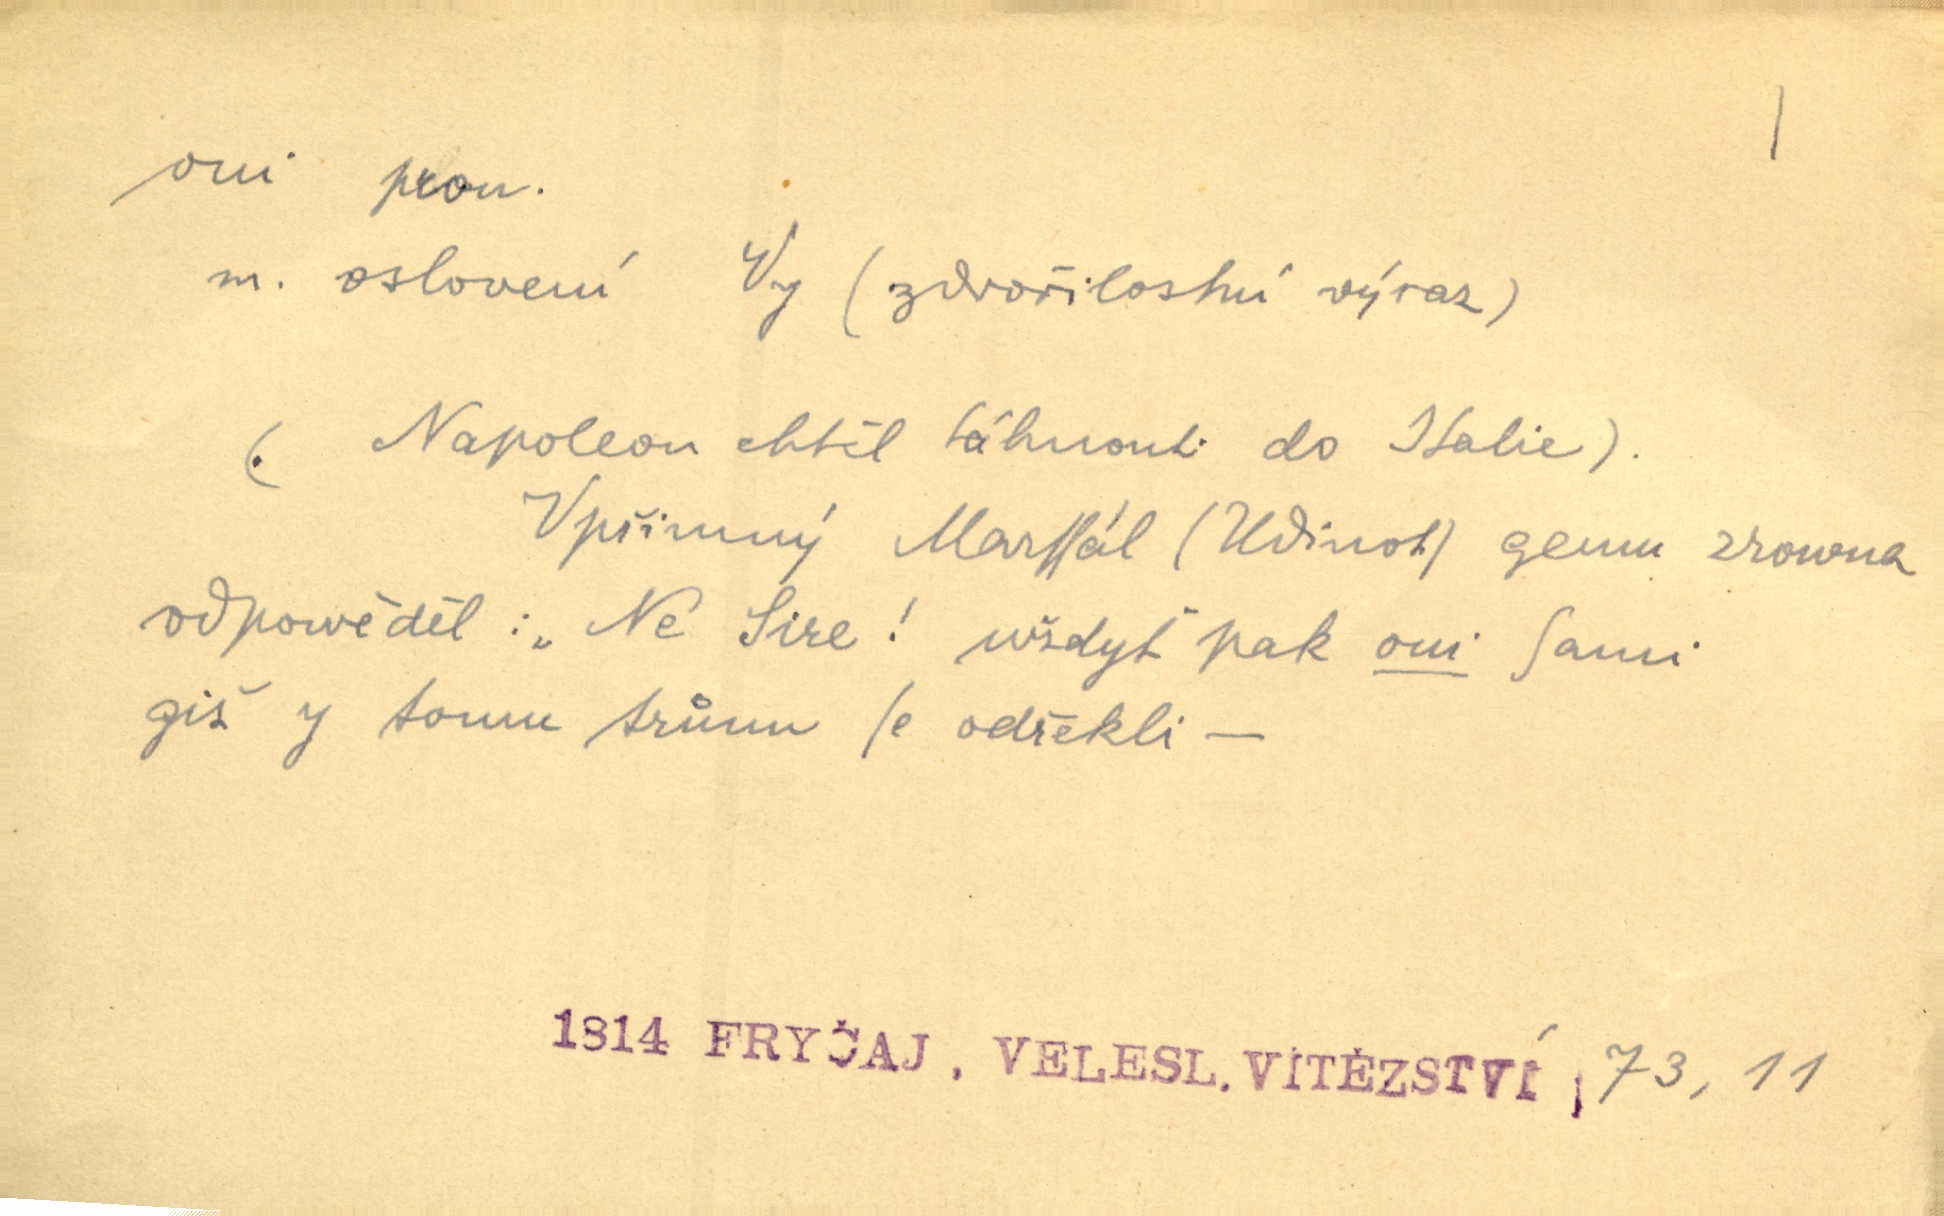 oni pron.
m. oslovení Vy (zdvořilostní výraz)
( Napoleon chtěl táhnouti do Italie).
Vpřimný Marſſál (Udinot) gemu zrowna
odpowěděl : „Ne Sire! wždyť pak oni ſami
giž y tomu trůnu ſe odřekli —
1814 FRYČAJ, VELESL. VÍTĚZSTVÍ, 73, 11